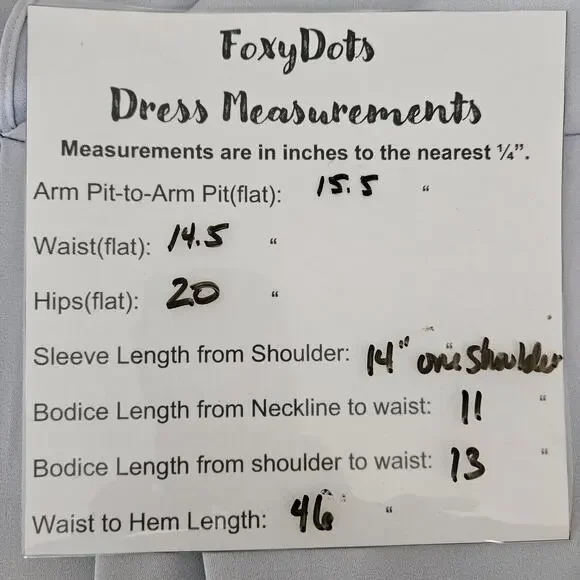 FoxyDots
Dress Measurements
Measurements are in inches to the nearest ¼”.
Arm Pit-to-Arm Pit(flat): 15.5 “
Waist(flat): 14.5 “
Hips(flat): 20 “
Sleeve Length from Shoulder: 14" one shoulder “
Bodice Length from Neckline to waist: 11 “
Bodice Length from shoulder to waist: 13 “
Waist to Hem Length: 46 “